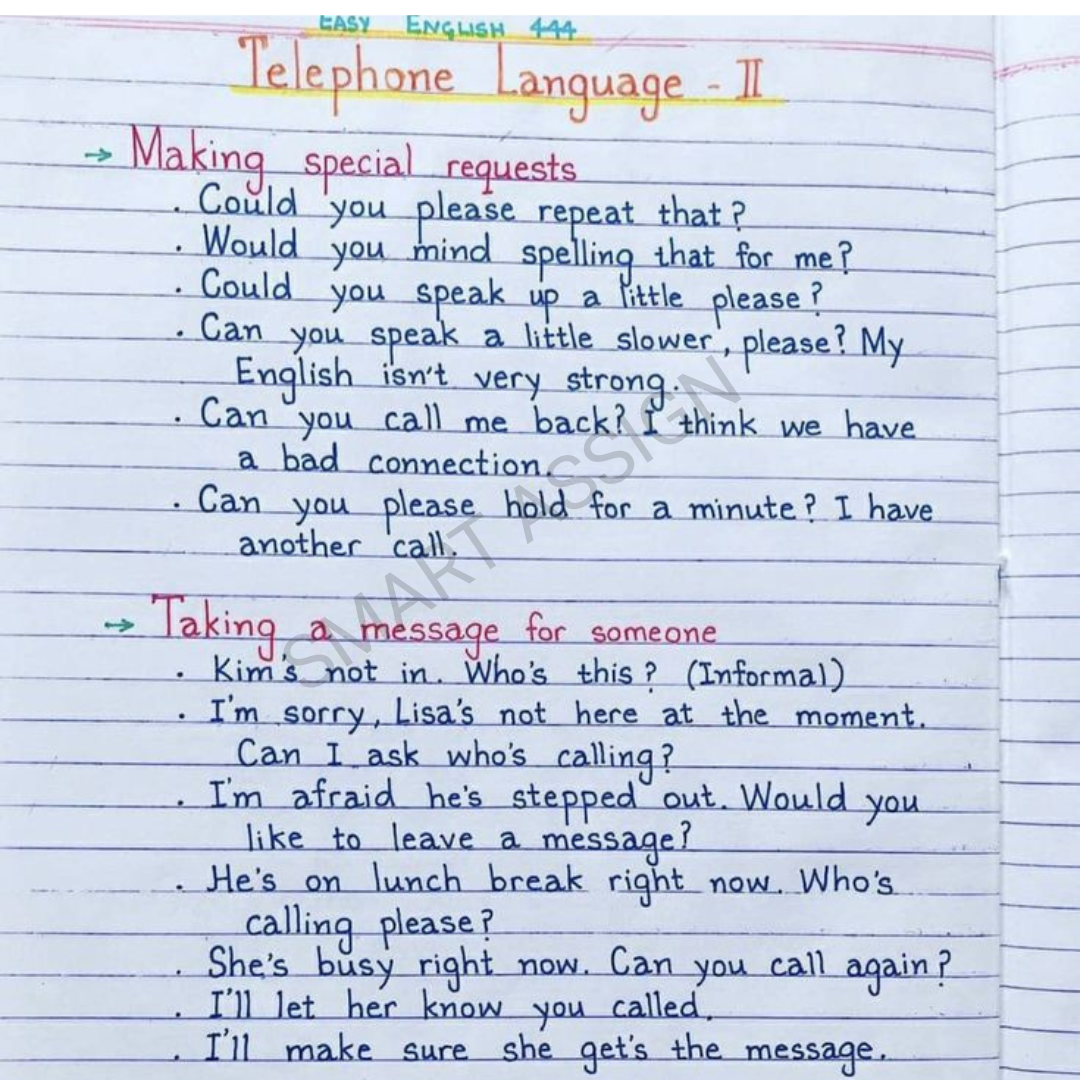 EASY ENGLISH 444
Telephone Language - II
→ Making special requests
. Could you please repeat that?
. Would you mind spelling that for me?
. Could you speak up a little please?
. Can you speak a little slower, please? My
English isn't very strong.
. Can you call me back? I think we have
a bad connection.
. Can you please hold for a minute? I have
another call.
→ Taking a message for someone
. Kim's not in. Who's this? (Informal)
. I'm sorry, Lisa's not here at the moment.
Can I ask who's calling?
. I'm afraid he's stepped out. Would you
like to leave a message?
. He's on lunch break right now. Who's
calling please?
. She's busy right now. Can you call again?
. I'll let her know you called.
. I'll make sure she get's the message.
SMART ASSIGN